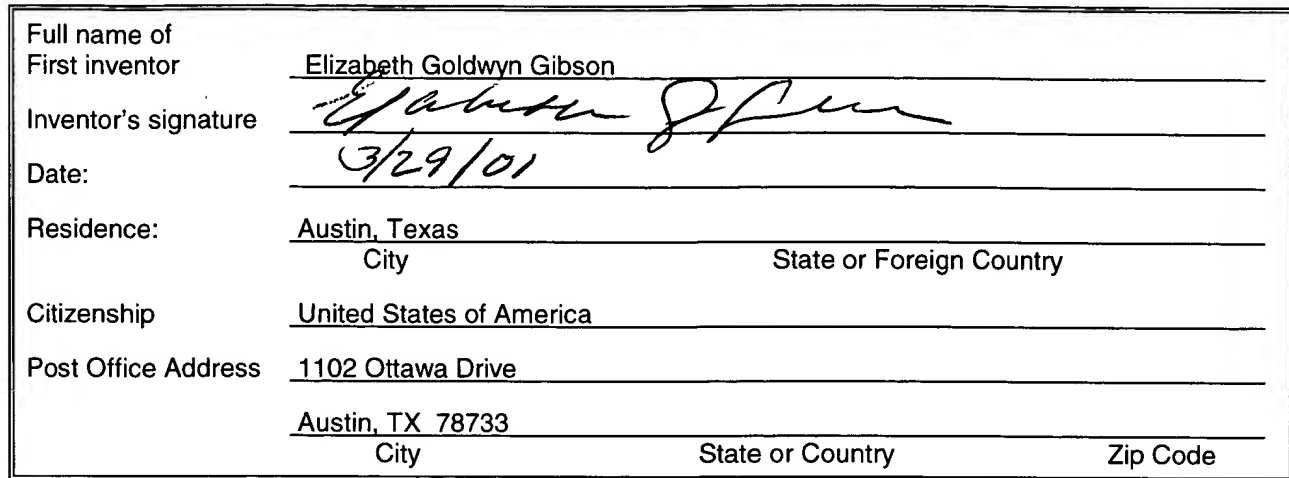 Full name of
First inventor Elizabeth Goldwyn Gibson
Inventor's signature Elizabeth G
Date: 3/29/01
Residence: Austin, Texas
City State or Foreign Country
Citizenship United States of America
Post Office Address 1102 Ottawa Drive
Austin, TX 78733
City State or Country Zip Code